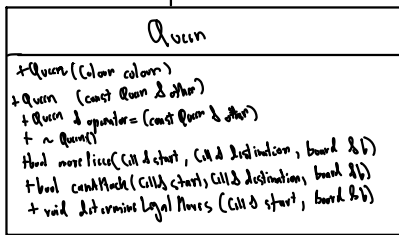 Queen
+Queen (Colour colour)
+ Queen (const Queen & other)
+ Queen & operator= (const Queen & other)
+ ~ Queen()
+bool movePiece(Cell & start, Cell & destination, board &b)
+bool canAttack(Cell & start, Cell & destination, board &b)
+ void determineLegalMoves (Cell & start, board &b)